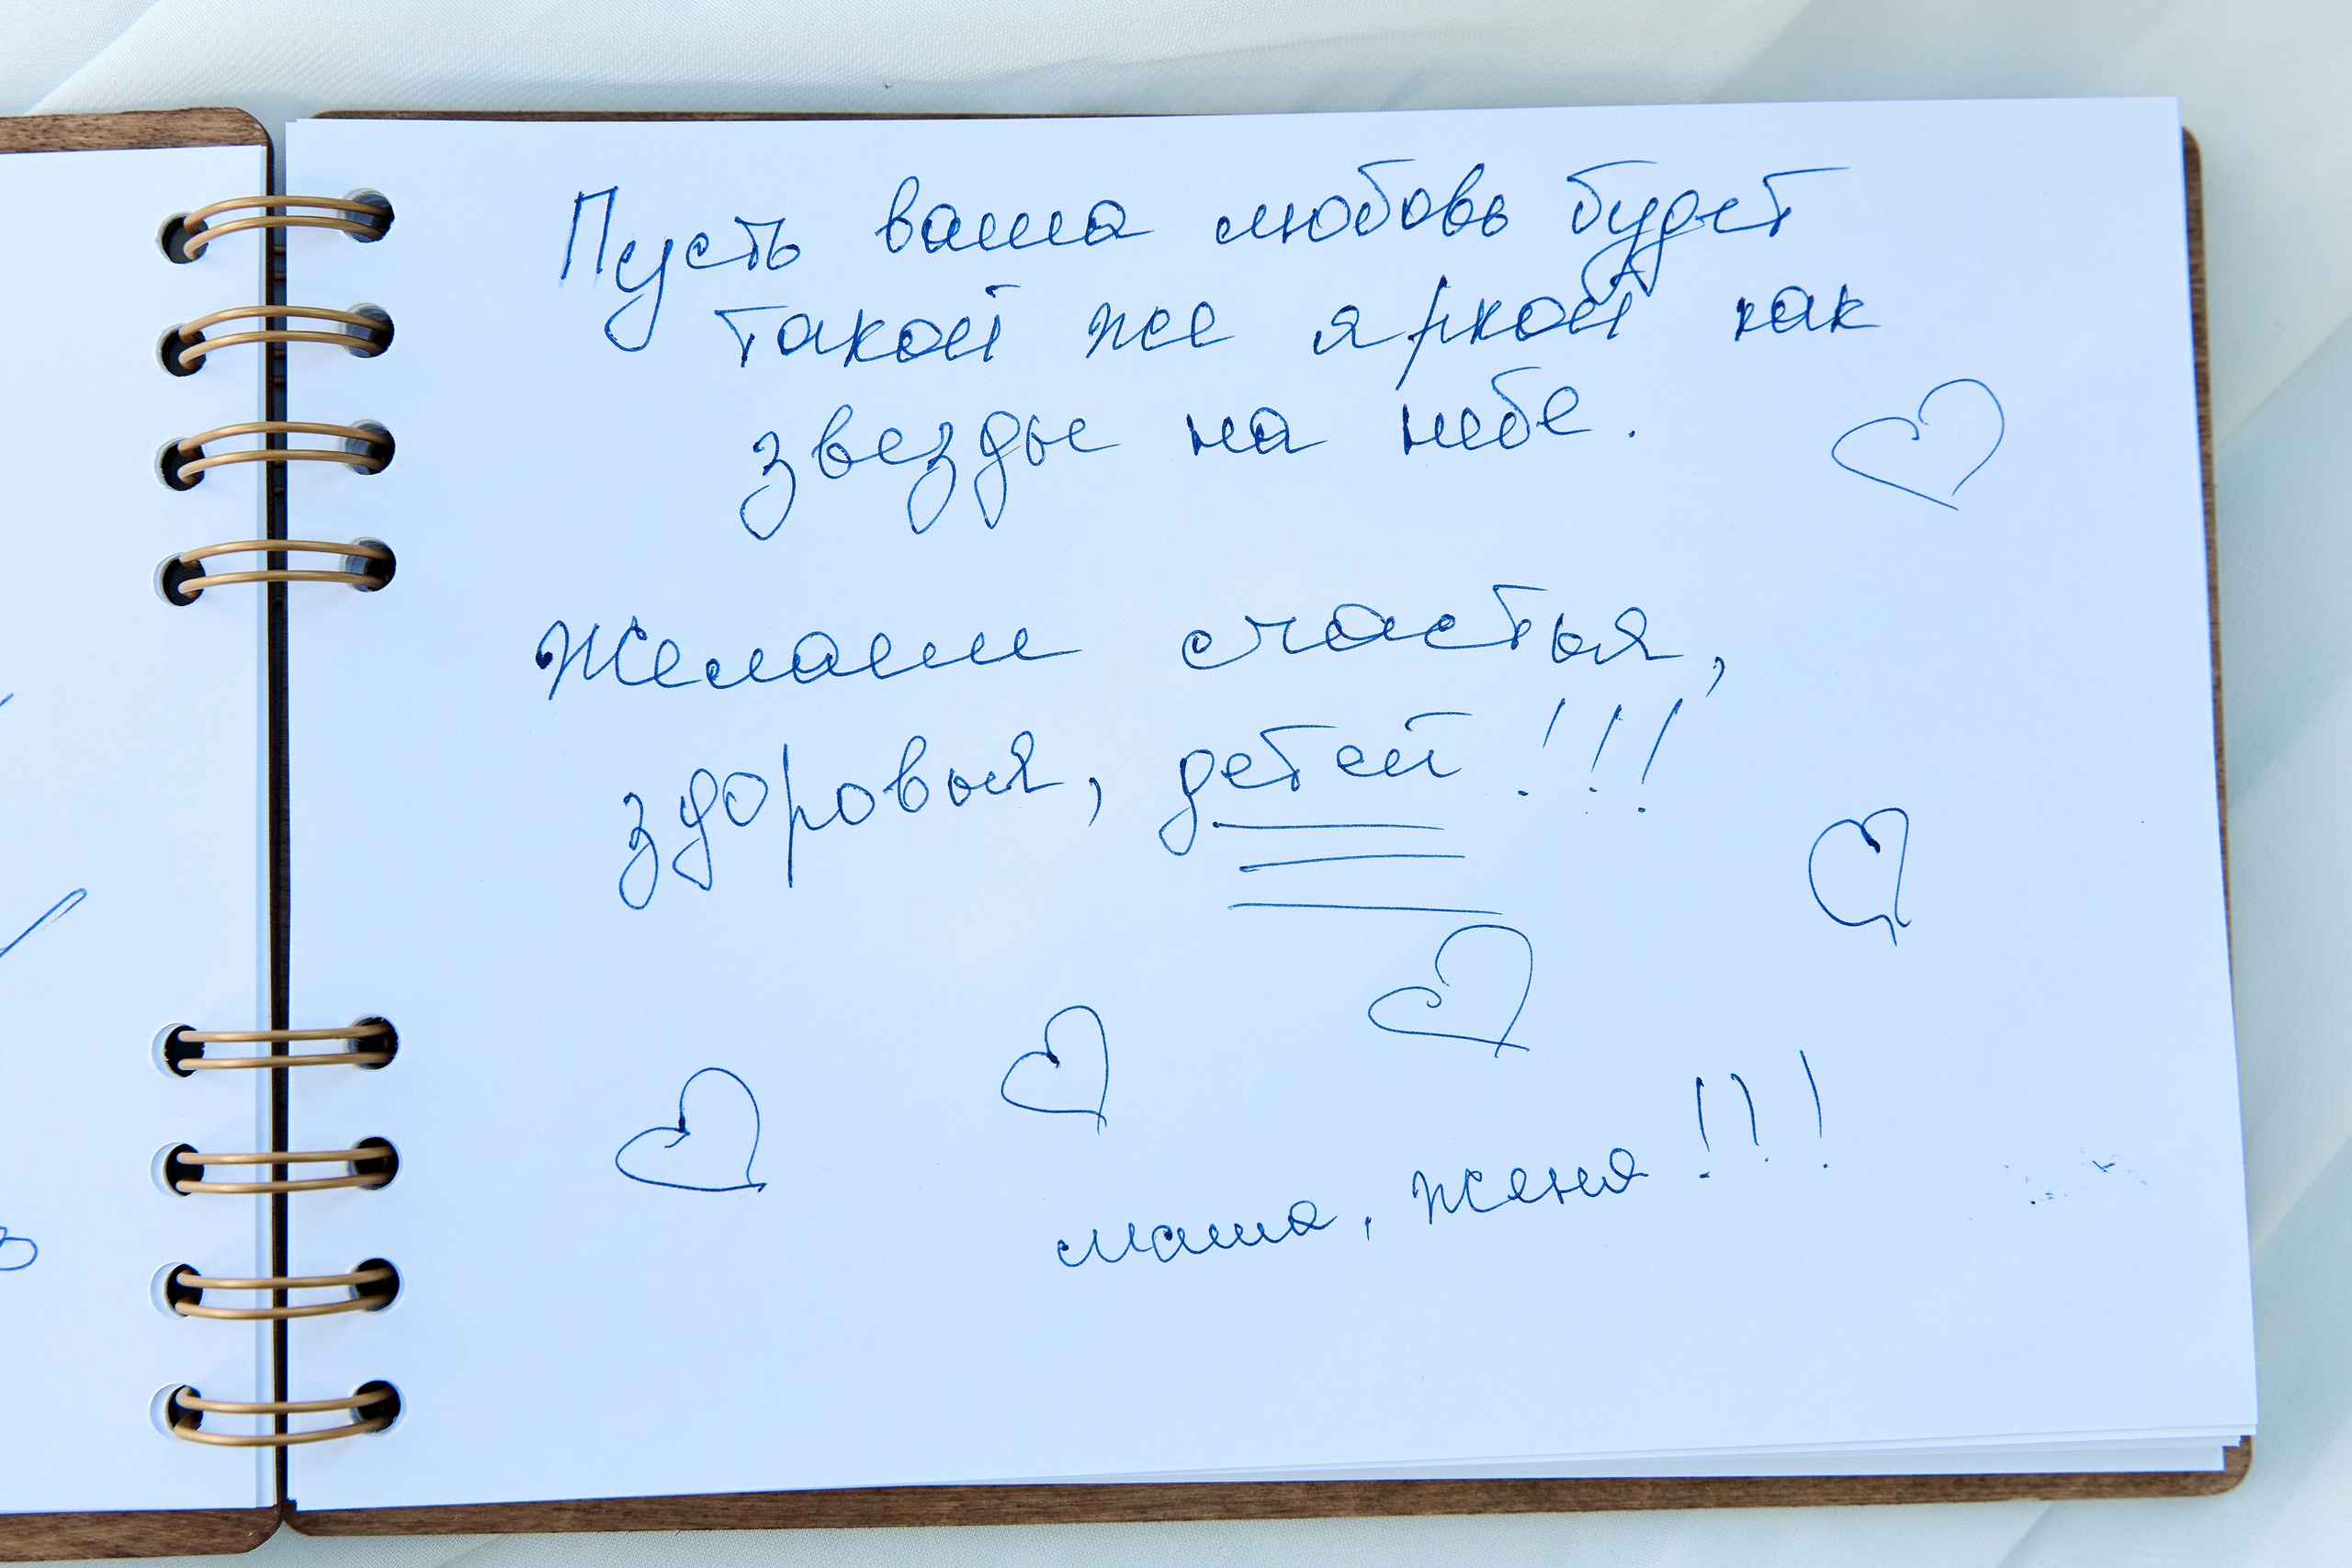 Пусть ваша любовь будет
такой же яркой как
звезды на небе.
Желаем счастья,
здоровья, детей!!!
Маша, Женя!!!